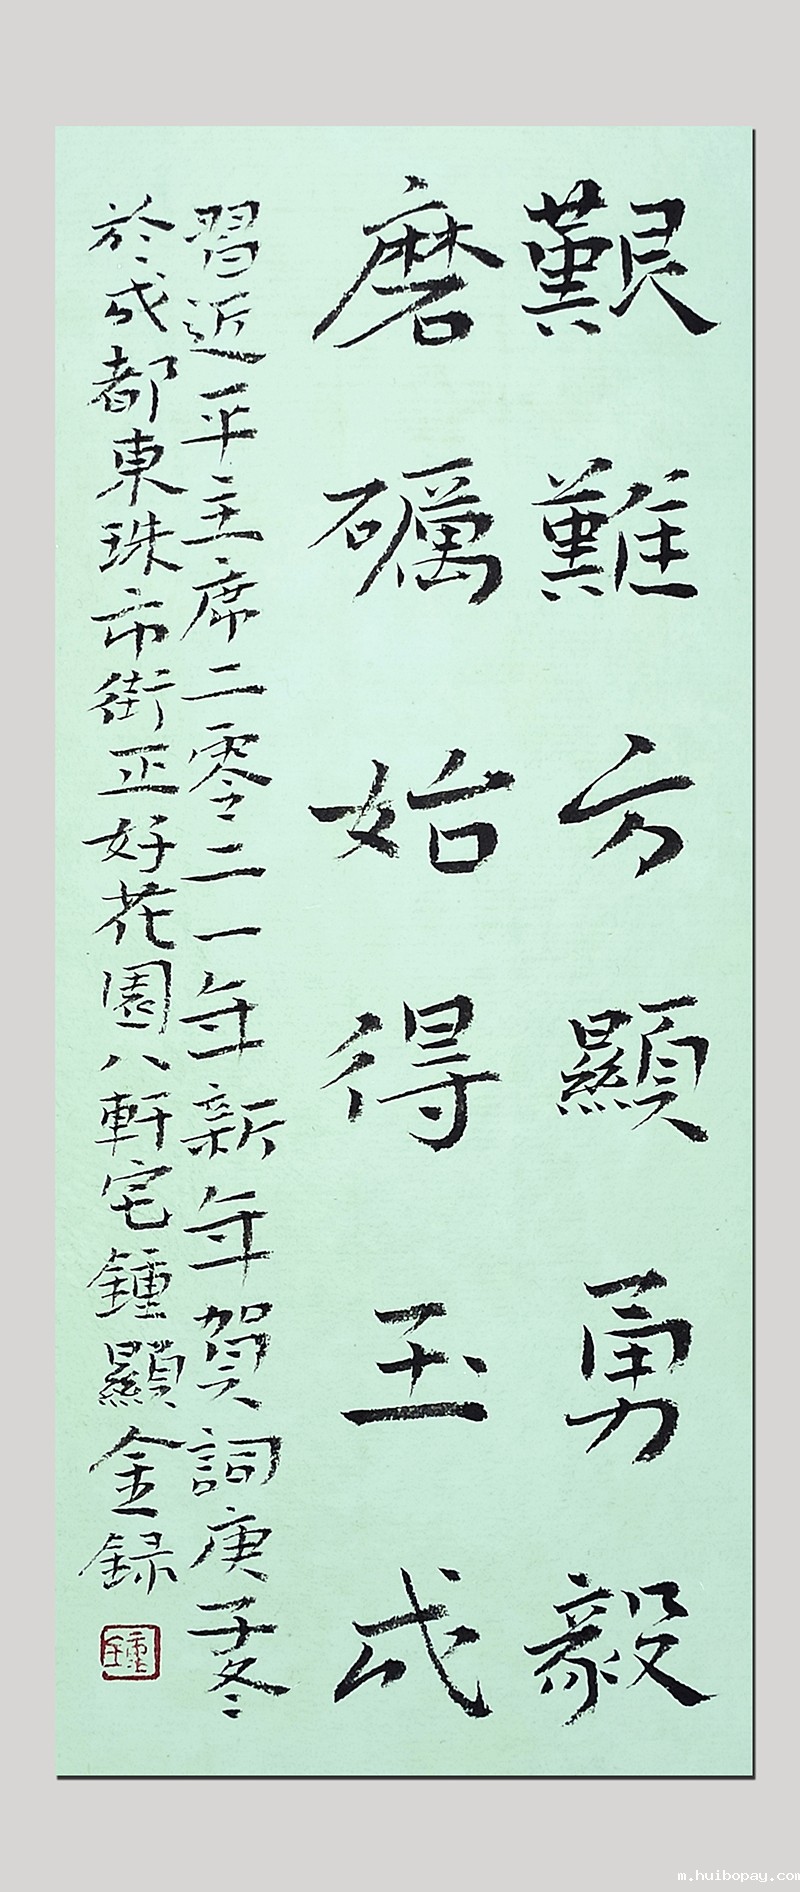 艱難方顯勇毅
磨礪始得玉成
習近平主席二零二一年新年賀詞庚子冬
於成都東珠市街正好花園八軒宅鍾顯金録
鍾
m.huibopay.com